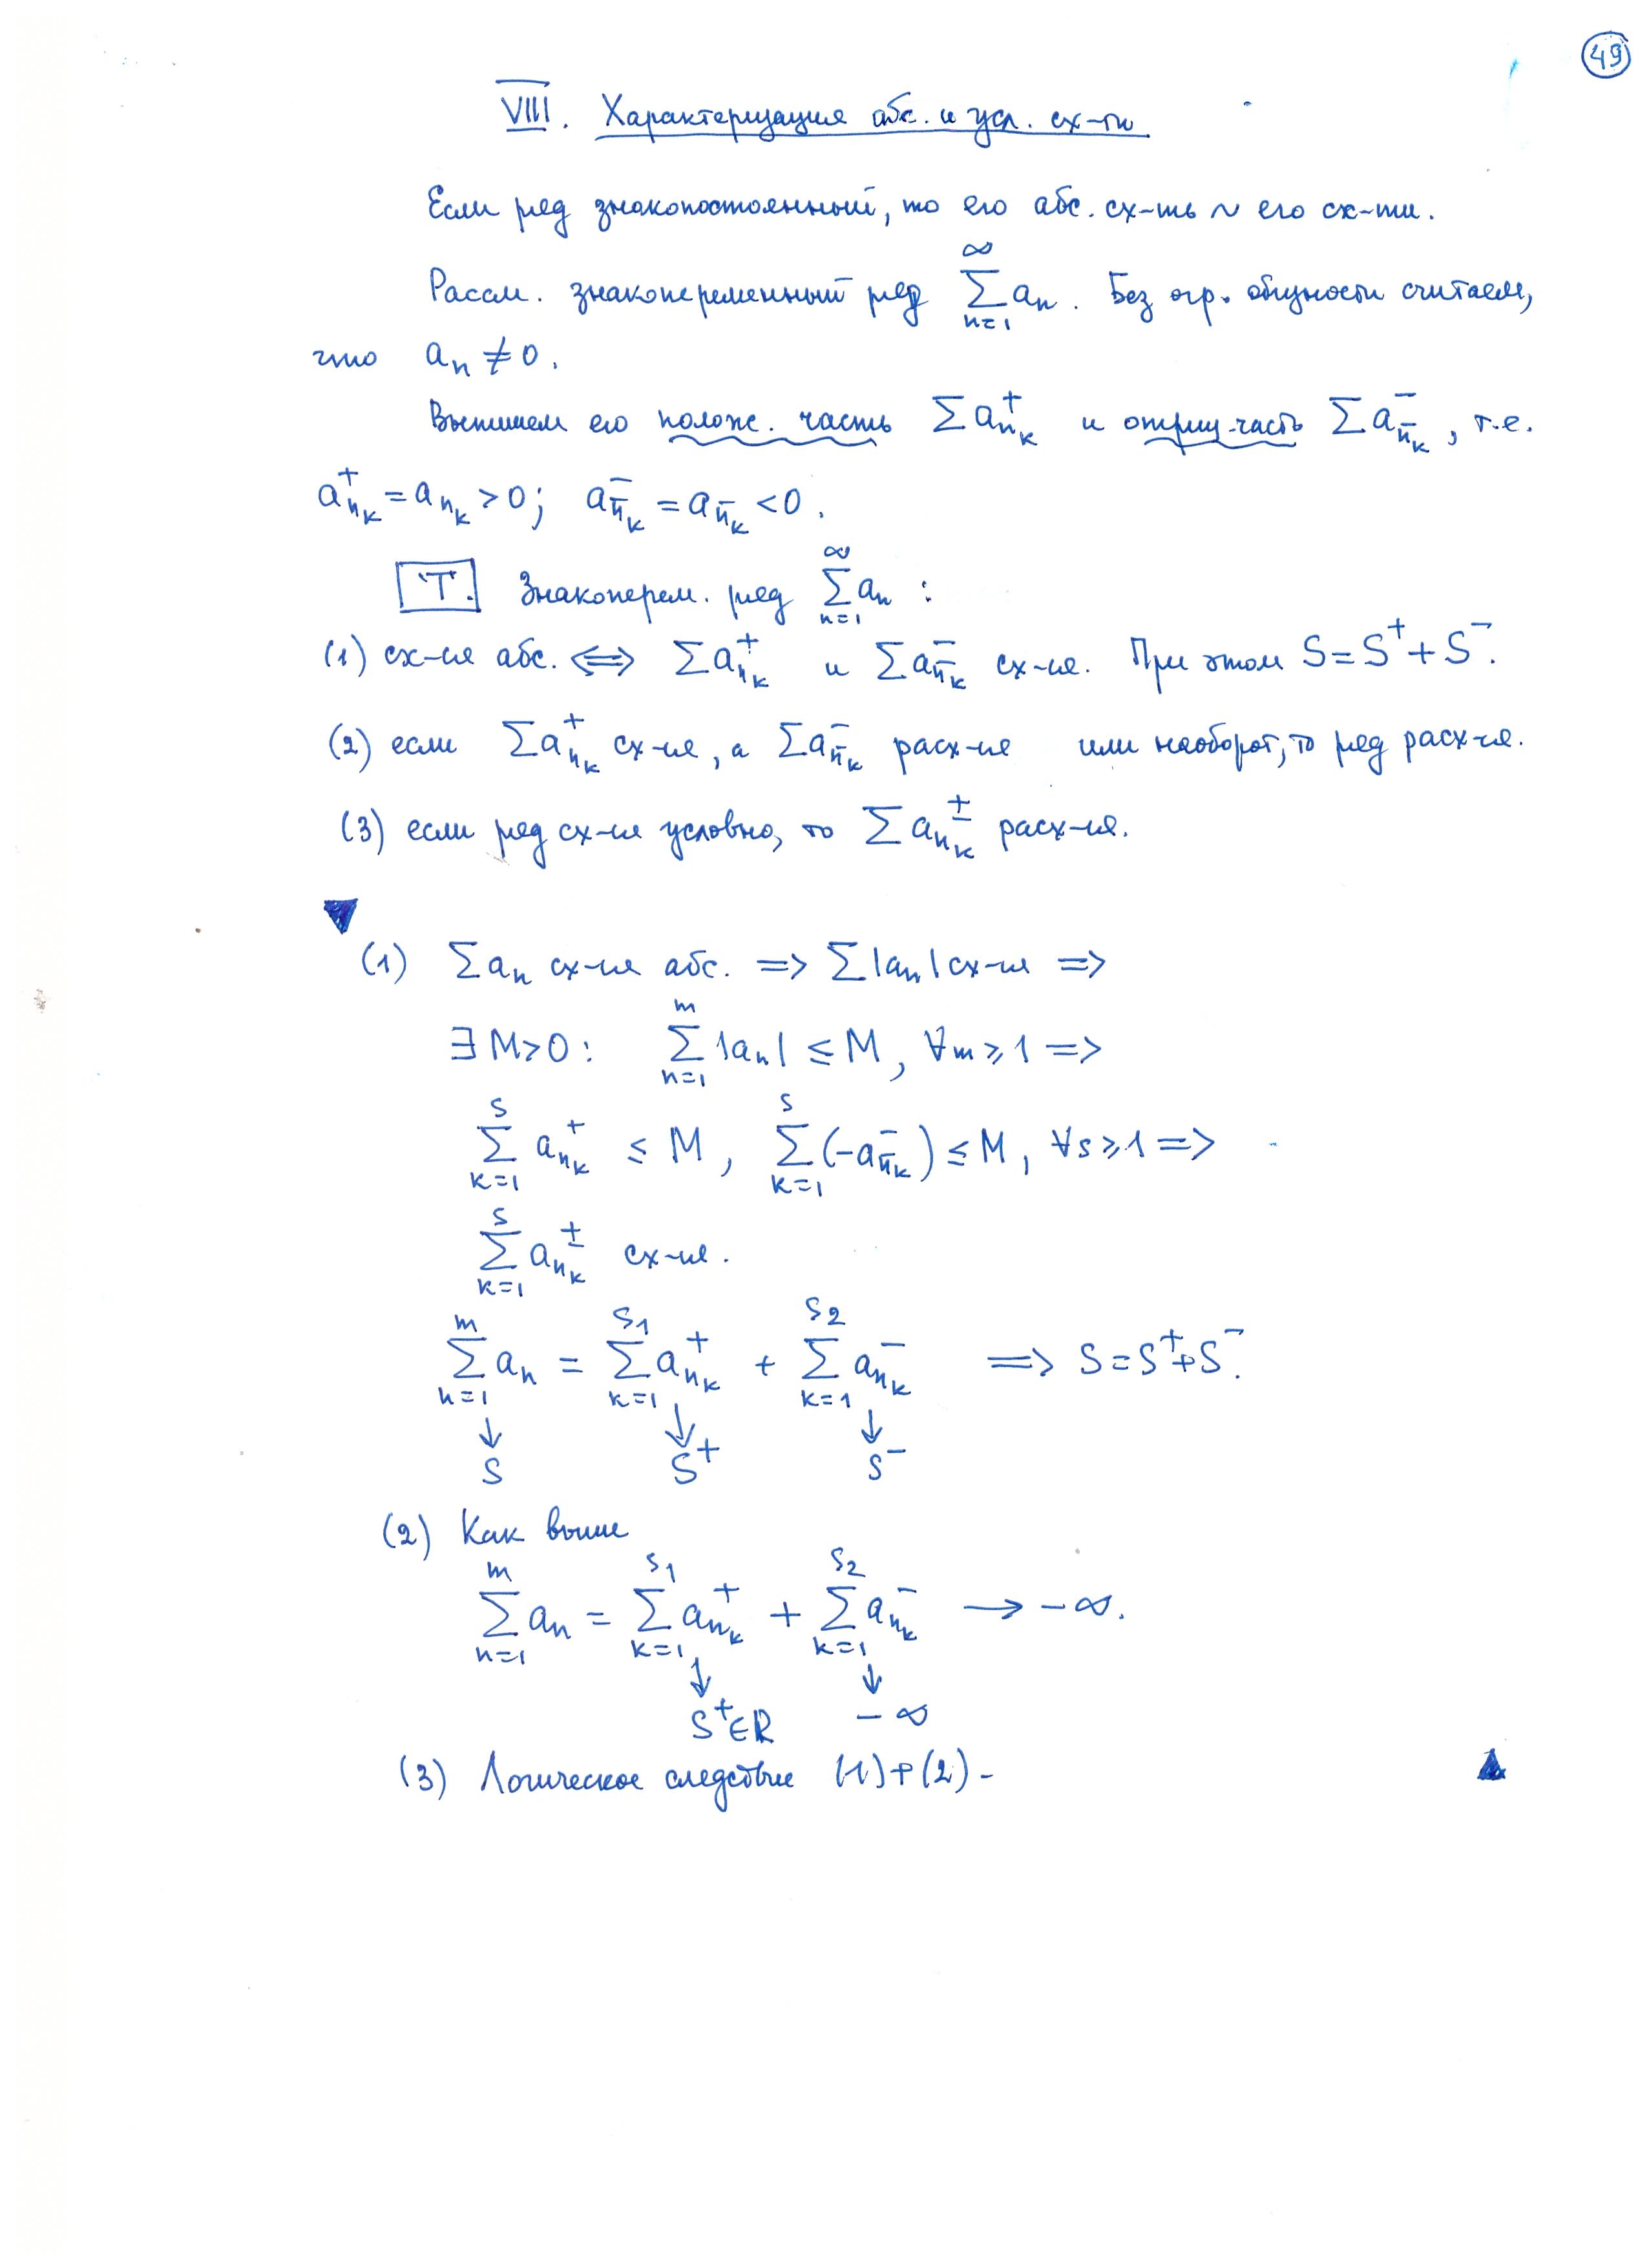 49
VIII. Характеризация абс. и усл. сх-ти
Если ряд знакопостоянный, то его абс. сх-ть ~ его сх-ти.
Рассм. знакопеременный ряд $\sum_{n=1}^{\infty} a_n$. Без огр. общности считаем,
что $a_n \neq 0$.
Выпишем его полож. часть $\sum a_{n_k}^+$ и отриц. часть $\sum a_{\bar{n}_k}^-$, т.е.
$a_{n_k}^+ = a_{n_k} > 0$; $a_{\bar{n}_k}^- = a_{\bar{n}_k} < 0$.
Т. Знакоперем. ряд $\sum_{n=1}^{\infty} a_n$:
(1) сх-ся абс. <=> $\sum a_{n_k}^+$ и $\sum a_{\bar{n}_k}^-$ сх-ся. При этом $S = S^+ + S^-$.
(2) если $\sum a_{n_k}^+$ сх-ся, а $\sum a_{\bar{n}_k}^-$ расх-ся или наоборот, то ряд расх-ся.
(3) если ряд сх-ся условно, то $\sum a_{n_k}^{\pm}$ расх-ся.
▼
(1) $\sum a_n$ сх-ся абс. => $\sum |a_n|$ сх-ся =>
∃ M>0: $\sum_{n=1}^{m} |a_n| \leq M$, ∀m ⩾ 1 =>
$\sum_{k=1}^{s} a_{n_k}^+ \leq M$, $\sum_{k=1}^{s} (-a_{\bar{n}_k}^-) \leq M$, ∀s ⩾ 1 =>
$\sum_{k=1}^{s} a_{n_k}^{\pm}$ сх-ся.
$\sum_{n=1}^{m} a_n = \sum_{k=1}^{s_1} a_{n_k}^+ + \sum_{k=1}^{s_2} a_{n_k}^-$ => $S = S^+ + S^-$.
↓ ↓ ↓
S $S^+$ $S^-$
(2) Как выше
$\sum_{n=1}^{m} a_n = \sum_{k=1}^{s_1} a_{n_k}^+ + \sum_{k=1}^{s_2} a_{n_k}^- \to -\infty$.
↓ ↓
$S^+ \in R$ $-\infty$
(3) Логическое следствие (1)+(2). ▲